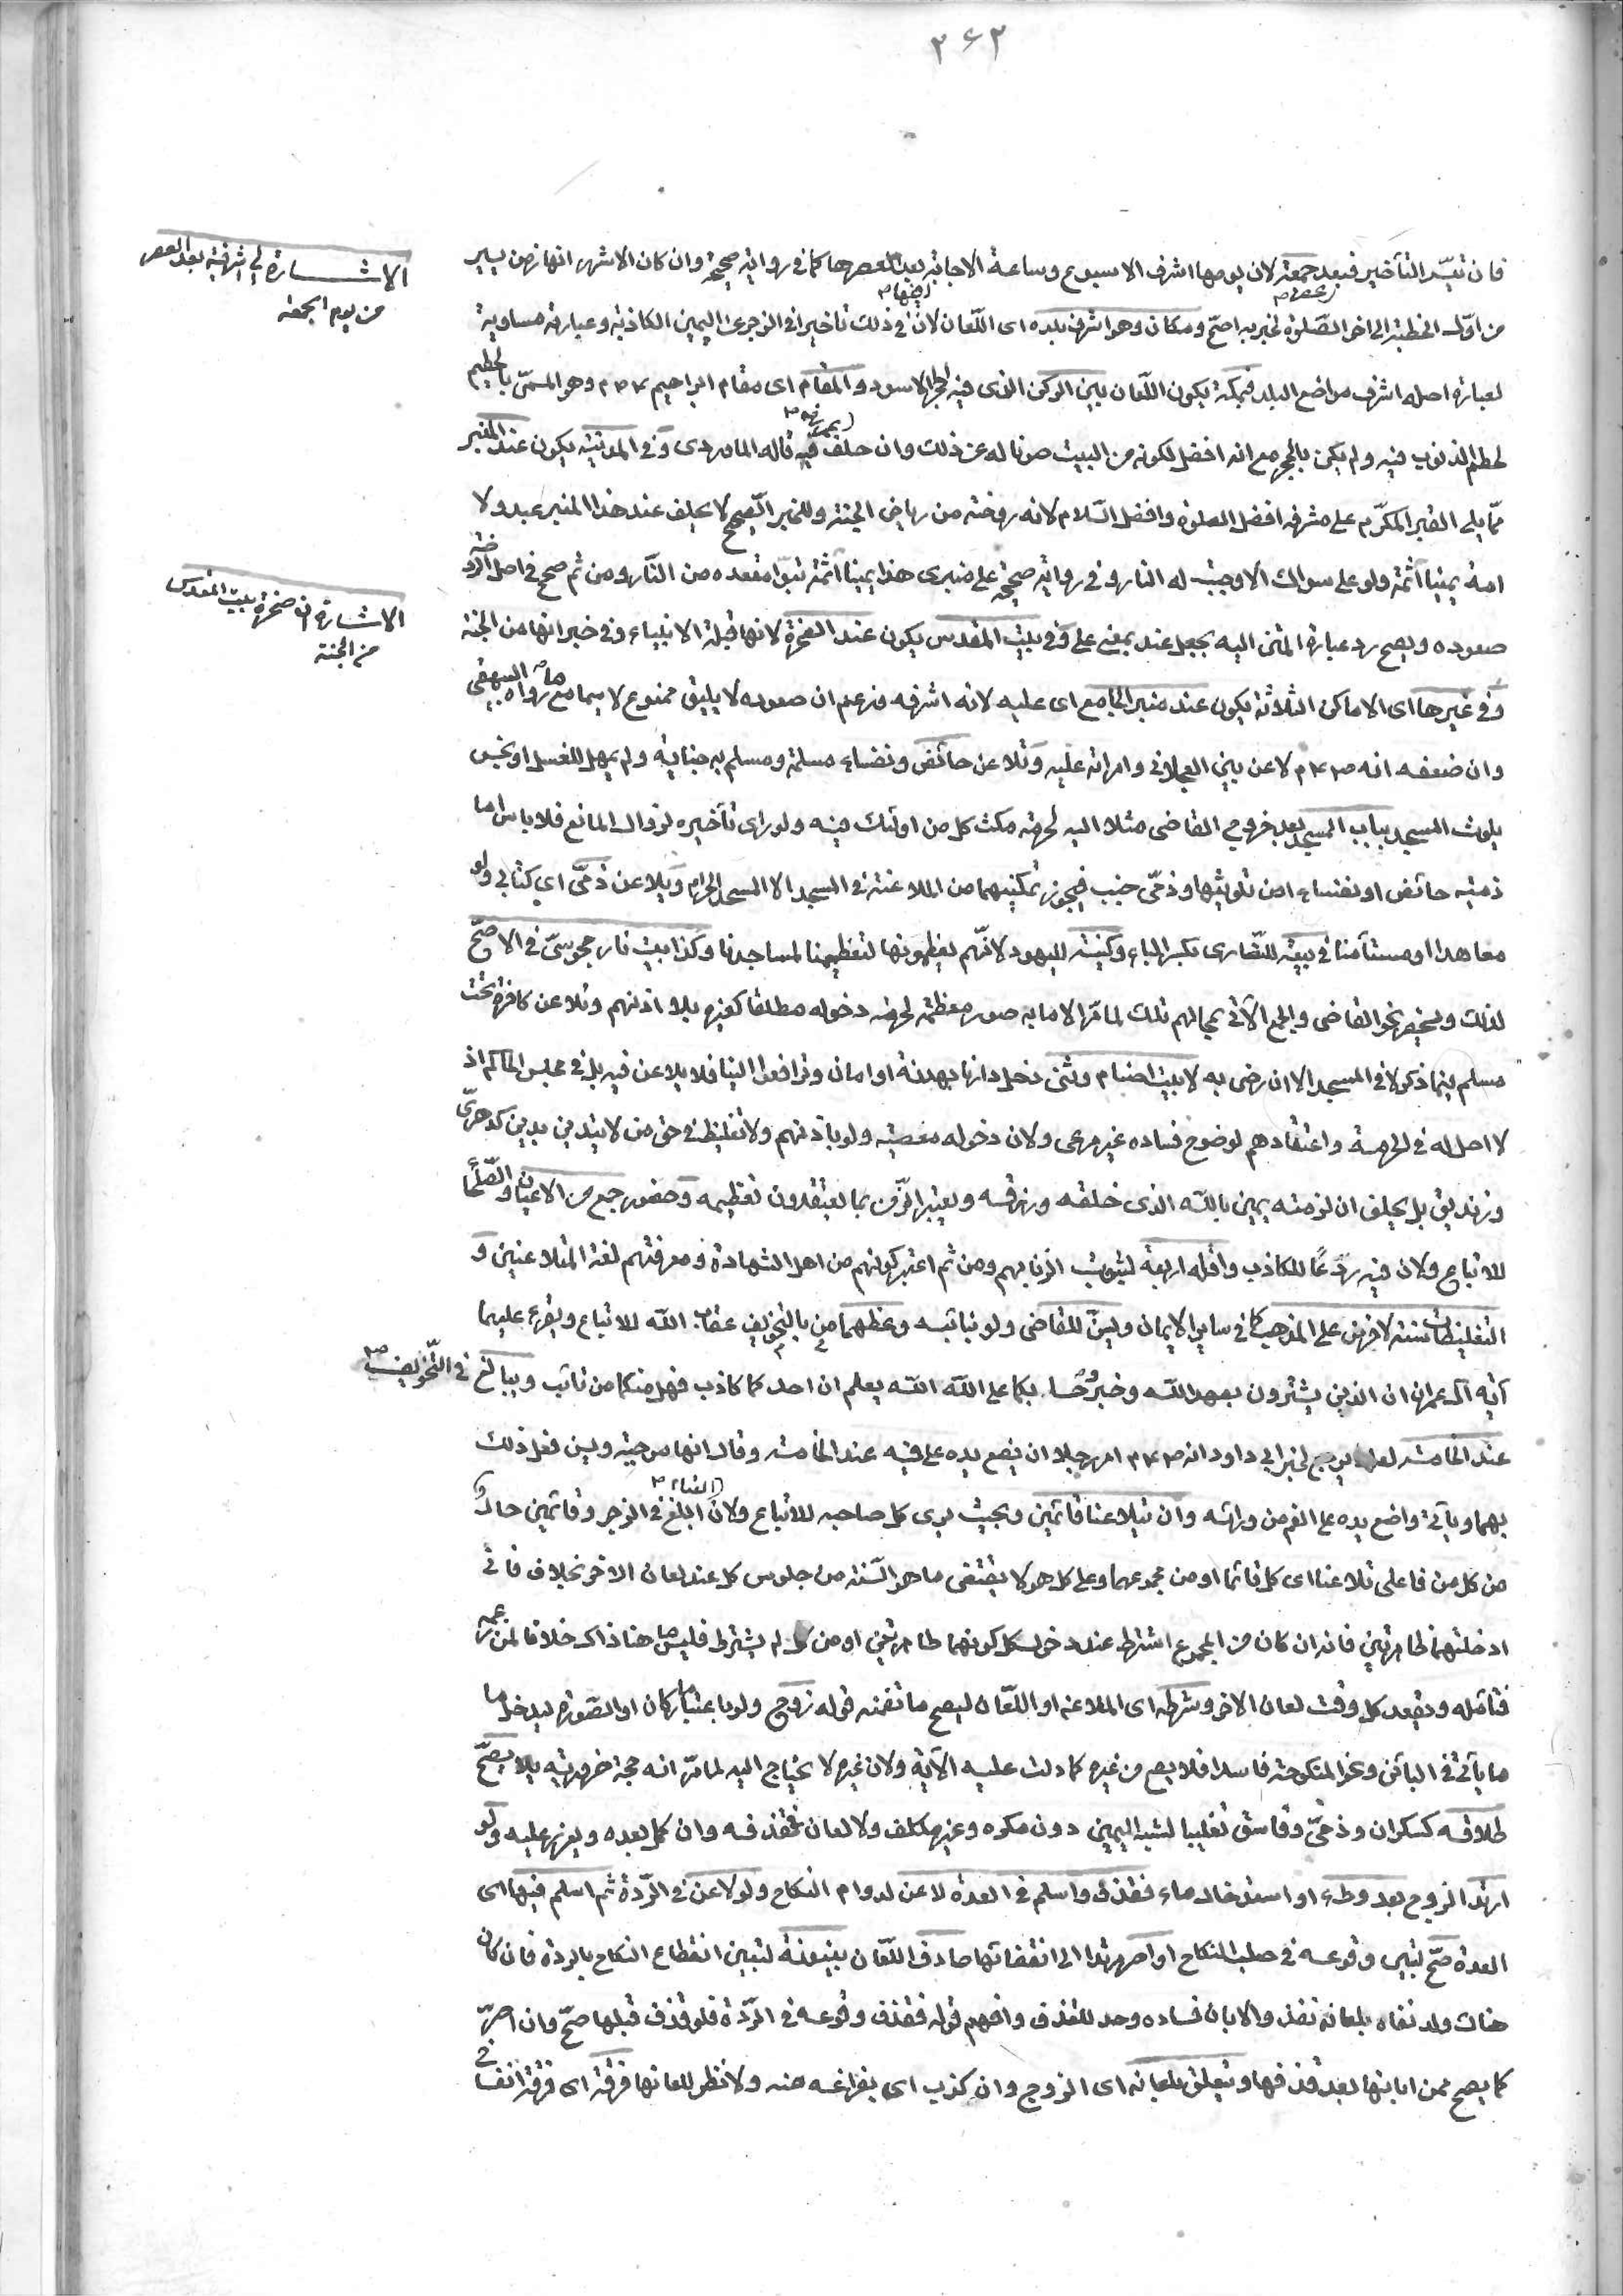 ٣٦٣
فان تيسر التأخير فبعد جمعة لان يومها اشرف الاسبوع وساعة الاجابة بعد عصرها كما في رواية صحيحة وان كان الاشهر انها زمن يسير
الاشارة الى شرفية بعد العصر
من يوم الجمعة
من اول الخطبة الى اخر الصلوة لخبر به اصح ومكان وهو اشرف بلده اى اللعان لان في ذلك تاخيرا في الزجر عن اليمين الكاذبة وعبارته مساوية
لعبارة اصله اشرف مواضع البلد فبمكة يكون اللعان بين الركن الذى فيه الحجر الاسود والمقام اى مقام ابراهيم وهو المسمى بالحطيم
لحطم الذنوب فيه ولم يكن بالحجر مع انه افضل لكونه من البيت صونا له عن ذلك وان حلف فيه قاله الماوردى وفي المدينة يكون عند المنبر
مما يلى القبر المكرم على مشرفه افضل الصلوة وافضل السلام لانه روضة من رياض الجنة وللخبر الصحيح لا يحلف عند هذا المنبر عبد ولا
امة يمينا آثمة ولو على سواك الا وجبت له النار وفي رواية صحيحة على منبرى هذا يمينا آثمة تبوأ مقعده من النار ومن ثم صحح في اصل الروضة
صعوده ويصح رد عبارة المتن اليه بجعل عند بمعنى على وفي بيت المقدس يكون عند الصخرة لانها قبلة الانبياء وفي خبر انها من الجنة
الاشارة ان صخرة بيت المقدس
من الجنة
وفي غيرها اى الاماكن الثلاثة يكون عند منبر الجامع اى عليه لانه اشرفه فزعم ان صعوده لا يليق ممنوع لا سيما مع ما رواه البيهقى
وان ضعفه انه لاعن بين العجلانى وامراته عليه وتلاعن حائض ونفساء مسلمة ومسلم به جنابة ولم يمهل للغسل او نجس
يلوث المسجد بباب المسجد بعد خروج القاضى مثلا اليه لحرمة مكث كل من اولئك فيه ولو راى تأخيره لزوال المانع فلا باس اما
ذمية حائض او نفساء امن تلويثها وذمى جنب فيجوز تمكينهما من الملاعنة في المسجد الا المسجد الحرام ويلاعن ذمى اى كتابى ولو
معاهدا او مستأمنا في بيعة للنصارى بكسر الباء وكنيسة لليهود لانهم يعظمونها كتعظيمنا لمساجدنا وكذا بيت نار مجوسى في الاصح
لذلك ويحضر نحو القاضى والجمع الآتى بمحالهم تلك لما مر الا ما به صور معظمة لحرمة دخوله مطلقا كغيره بلا اذنهم وتلاعن كافرة تحت
مسلم فيما ذكر لا في المسجد الا ان رضى به لا بيت اصنام وثنى دخل دارنا بهدنة او امان وترافعوا الينا فلا يلاعن فيه بل في مجلس الحاكم اذ
لا اصل له في الحرمة واعتقادهم لوضوح فساده غير مرعى ولان دخوله معصية ولو باذنهم ولا تغليظ في حق من لا يتدين بدين كدهرى
وزنديق بل يحلف ان لزمته يمين بالله الذى خلقه ورزقه ويعتبر الزمن بما يعتقدون تعظيمه وحضور جمع من الاعيان والصلحاء
للاتباع ولان فيه ردعا للكاذب واقله اربعة لثبوت الزنا بهم ومن ثم اعتبر كونهم من اهل الشهادة ومعرفتهم لغة المتلاعنين و
التغليظات سنة لا فرض على المذهب كما في ساير الايمان ويسن للقاضى ولو نيابة وعظهما بالتخويف من عقاب الله للاتباع ويقرء عليهما
آية آل عمران ان الذين يشترون بعهد الله وخبر وحسابكما على الله الله يعلم ان احدكما كاذب فهل منكما من تائب ويبالغ في التخويف
عند الخامسة لعله يرجع لخبر ابى داود انه امر رجلا ان يضع يده على فيه عند الخامسة وقال انها موجبة ويسن فعل ذلك
بهما وياتى واضع يده على الفم من ورائه وان يتلاعنا قائمين وبحيث يرى كل صاحبه للاتباع ولان القيام ابلغ في الزجر وقائمين حال
من كل من فاعلى تلاعنا اى كل قائما او من مجموعهما وعلى كل هو لا يقتضى ما هو السنة من جلوس كل عند لعان الاخر بخلاف فانى
ادخلتهما طاهرتين فانه ان كان من المجموع اشترط عند دخول كل كونهما طاهرتين او من كل لم يشترط فليس هنا ذاك خلافا لمن زعمه
فتأمله ويقعد كل وقت لعان الاخر وشرطه اى الملاعن او اللعان ليصح ما تضمنه قوله زوج ولو باعتبار ما كان او الصورة ليدخل ما
ما يأتى في البائن ونحو المنكوحة فاسدا فلا يصح من غيره كما دلت عليه الآية ولان غيره لا يحتاج اليه لما مر انه حجة ضرورية يصح
طلاقه كسكران وذمى وفاسق تغليبا لشبه اليمين دون مكره وغير مكلف ولا لعان بقذفه وان كمل بعده ويعزر عليه ولو
ارتد الزوج بعد وطء او استدخال ماء فقذف واسلم في العدة لاعن لدوام النكاح ولو لاعن في الردة ثم اسلم فيها اى
العدة صح لتبين وقوعه في صلب النكاح او اصر مرتدا الى انقضائها صادف اللعان بينونة لتبين انقطاع النكاح بالردة فان كان
هناك ولد نفاه بلعانه نفذ والا بان فساده وحد للقذف وافهم قوله فقذف وقوعه في الردة فلو قذف قبلها صح وان اصر
كما يصح ممن ابانها بعد قذفها ويتعلق بلعانه اى الزوج وان كذب اى بفراغه منه ولا نظر للعانها فرقة اى فرقة انفساخ